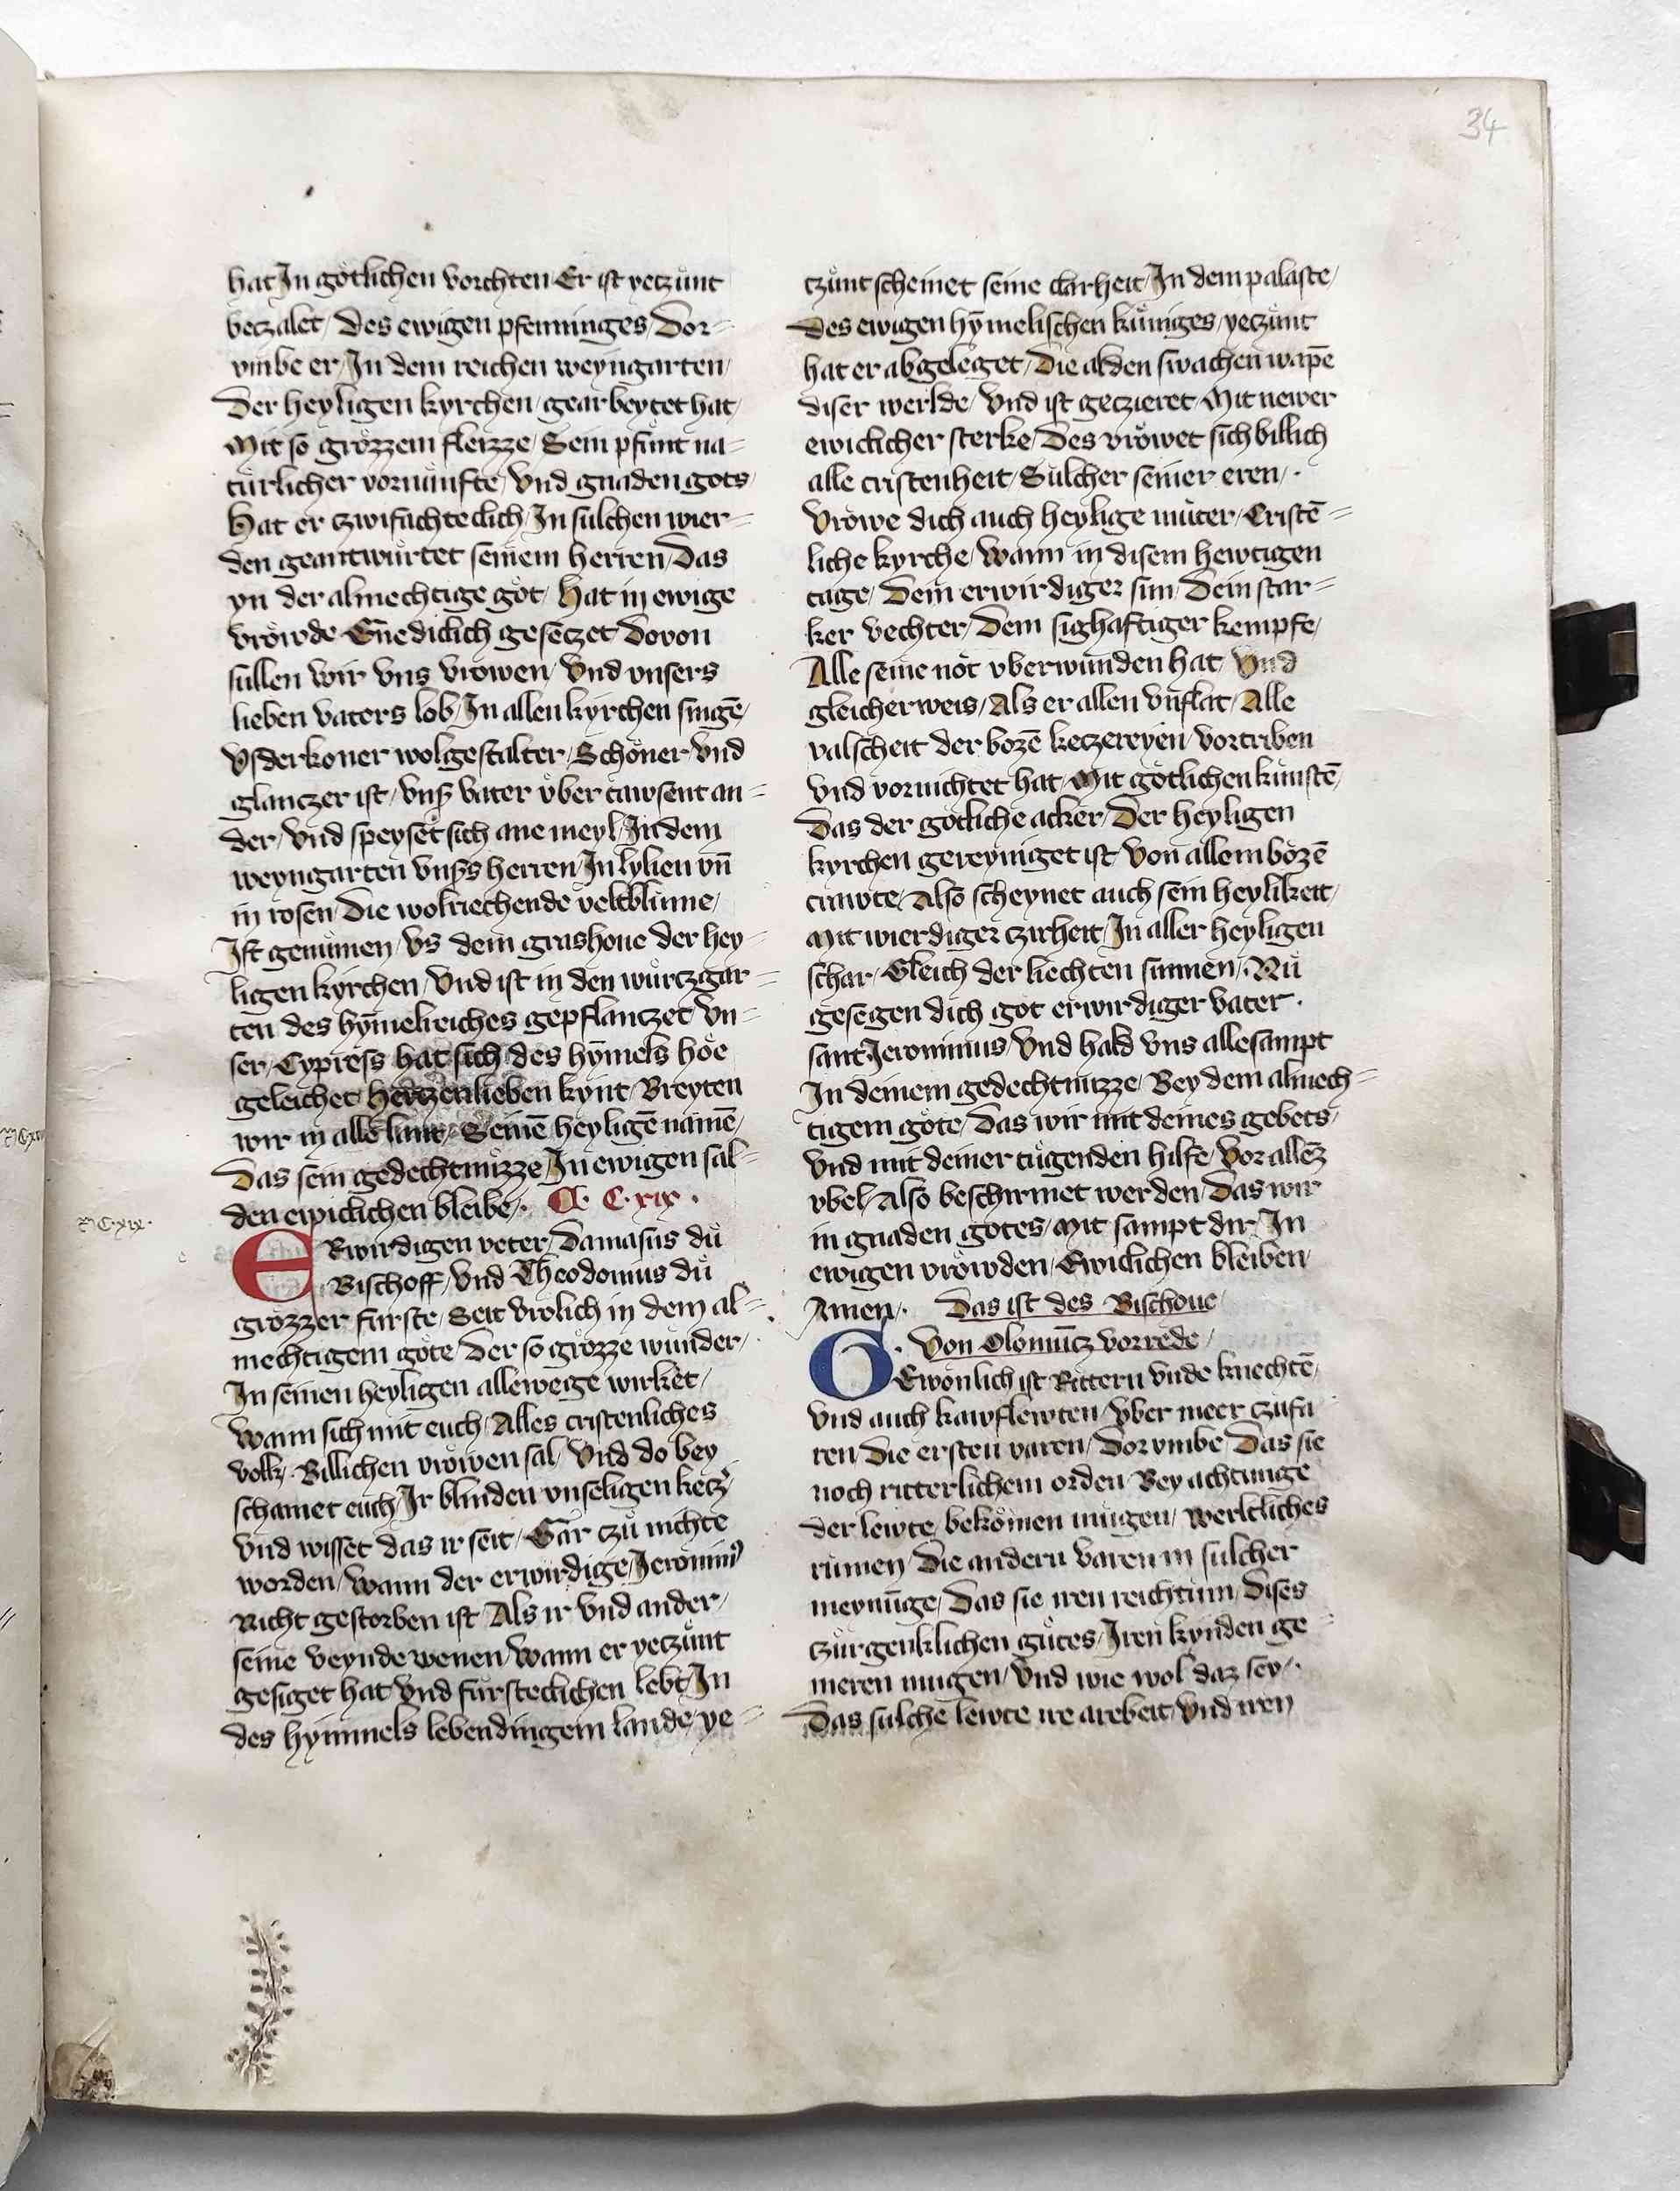 34
hat In gotlichen vorchten Er ist yeczunt
beczalet / des ewigen pfenninges / Dor=
vmbe er / In dem reichen weyngarten /
Der heyligen kyrchen / gearbeytet hat /
Mit so grozzem fleizze / Sein pfunt na=
turlicher vornunfte / vnd gnaden gots /
Hat er czwifachteclich / In sulchen wier=
den geantwurtet seinem herren / Das
yn der almechtige got / hat in ewige
vröwde Enediclich gesetzet Dovon
sullen wir vns vrowen / vnd vnsers
lieben vaters lob / In allen kyrchen singē /
Vsderkoner wolgestalter / Schöner vnd
glanczer ist / vnß vater vber tawsent an=
der / vnd speyset sich ane meyl / In dem
weyngarten vnßs herren / In lylien vn̄
in rosen / Die wolriechende veltblume /
Ist genumen / vs dem grashoue der hey=
ligen kyrchen / vnd ist in den wurczgar=
ten des hȳmelreiches gepflanczet vn=
ser / Cypress hat sich des hȳmels höe
geleichet herczenlieben kynt / Breyten
wir in alle lant / Seinē heyligē namē /
Das sein gedechtnuzze / In ewigen sal=
den ewiclichen bleibe / . C. C. xix .
C. xix .
ERwirdigen veter / Damasus du
Bischoff / vnd Theodonius du
grozzer furste / Seit vrolich in dem al=
mechtigem gote / Der so grozze wunder /
In seinen heyligen allewege wirket /
Wann sich mit euch / Alles cristenliches
volk / Billichen vrowen sal / Vnd do bey
schamet euch / Ir blinden vnseligen kecz'
vnd wisset das ir seit / Gar czu nichte
worden / Wann der erwirdige / Jeronim9
Nicht gestorben ist Als ir vnd ander /
seine veynde wenen / Wann er yeczunt
gesiget hat vnd fursteclichen lebt In
des hymmels lebendingem lande / ye=
czunt scheinet seine clarheit / In dem palaste /
Des ewigen hȳmelischen kuniges / yeczunt
hat er abgeleget / Die alden swachen wapē
diser werlde / Vnd ist geczieret Mit newer
ewiclicher sterke / Des vröwet sich billich
alle cristenheit / Sulcher seiner eren / .
Vrowe dich auch heylige muter / Cristē=
liche kyrche / Wann in disem hewtigen
tage / Dein erwirdiger sun / Dein star=
ker vechter / Dein sighaftiger kempfe /
Alle seine not vberwunden hat / Vnd
gleicherweis / Als er allen vnflat / Alle
valscheit der bozē keczereyen / vortriben
vnd vornichtet hat / Mit gotlichen kunstē /
Das der gotliche acker / Der heyligen
kyrchen gereyniget ist von allem bozē
crawte / Also scheynet auch sein heylikeit /
Mit wierdiger czirheit / In aller heyligen
schar / Gleich der liechten sunnen / Nu
gesegen dich got erwirdiger vater .
sant Jeronimus / Vnd hald vns allesampt
In deinem gedechtnuzze / Bey dem almech=
tigem gote / Das wir mit deines gebets /
vnd mit deiner tugenden hilfe / Vor allez
vbel / Also beschirmet werden / Das wir
in gnaden gotes / Mit sampt dir / In
ewigen vröwden / Ewiclichen bleiben
Amen / . Das ist des Bischoue
. Von Olomutz vorrede /
GEwonlich ist Rittern vnde knechtē /
vnd auch kawflewten / vber meer czufa
ren Die ersten varen / Dorvmbe Das sie
noch ritterlichem orden Bey achtunge
der lewte / bekomen mugen / werltliches
rumen / Die andern varen in sulcher
meynūge / Das sie iren reichtum / Dises
czurgenklichen gutes / Iren kynden ge=
meren mugen / Vnd wie wol daz sey / .
Das sulche lewte ire arebeit / vnd iren